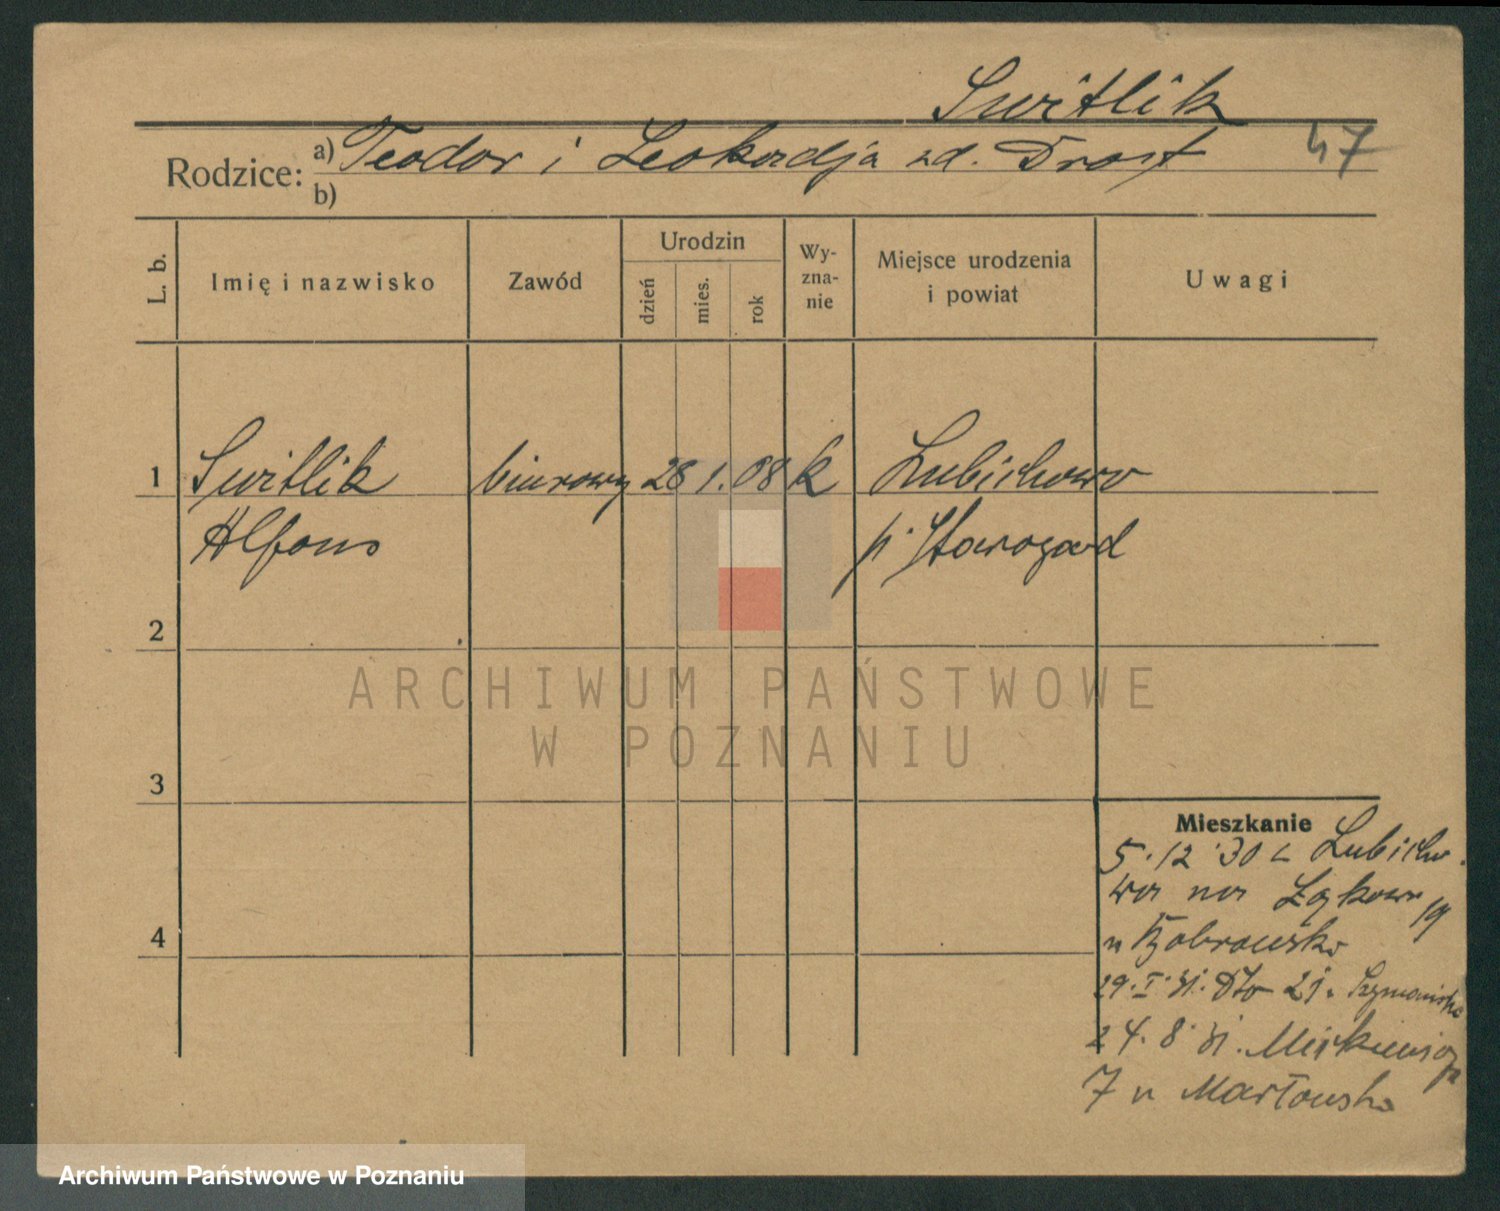 Switlik
Rodzice: a) Teodor i Leokadja zd. Drost 47
b)
L. b. Imię i nazwisko Zawód Urodzin dzień mies. rok Wy-zna-nie Miejsce urodzenia i powiat Uwagi
1 Switlik biurowy 28 1. 08 k Lubichowo
Alfons p. Starogard
2
ARCHIWUM PAŃSTWOWE
W POZNANIU
3
Mieszkanie
5.12.30 z Lubicho-
wa na Łąkowa 19
4
u Dobrowska
29.I.31. Dto 21. Szymańska
24.8.31. Mickiewicza
7 u Martowska
Archiwum Państwowe w Poznaniu